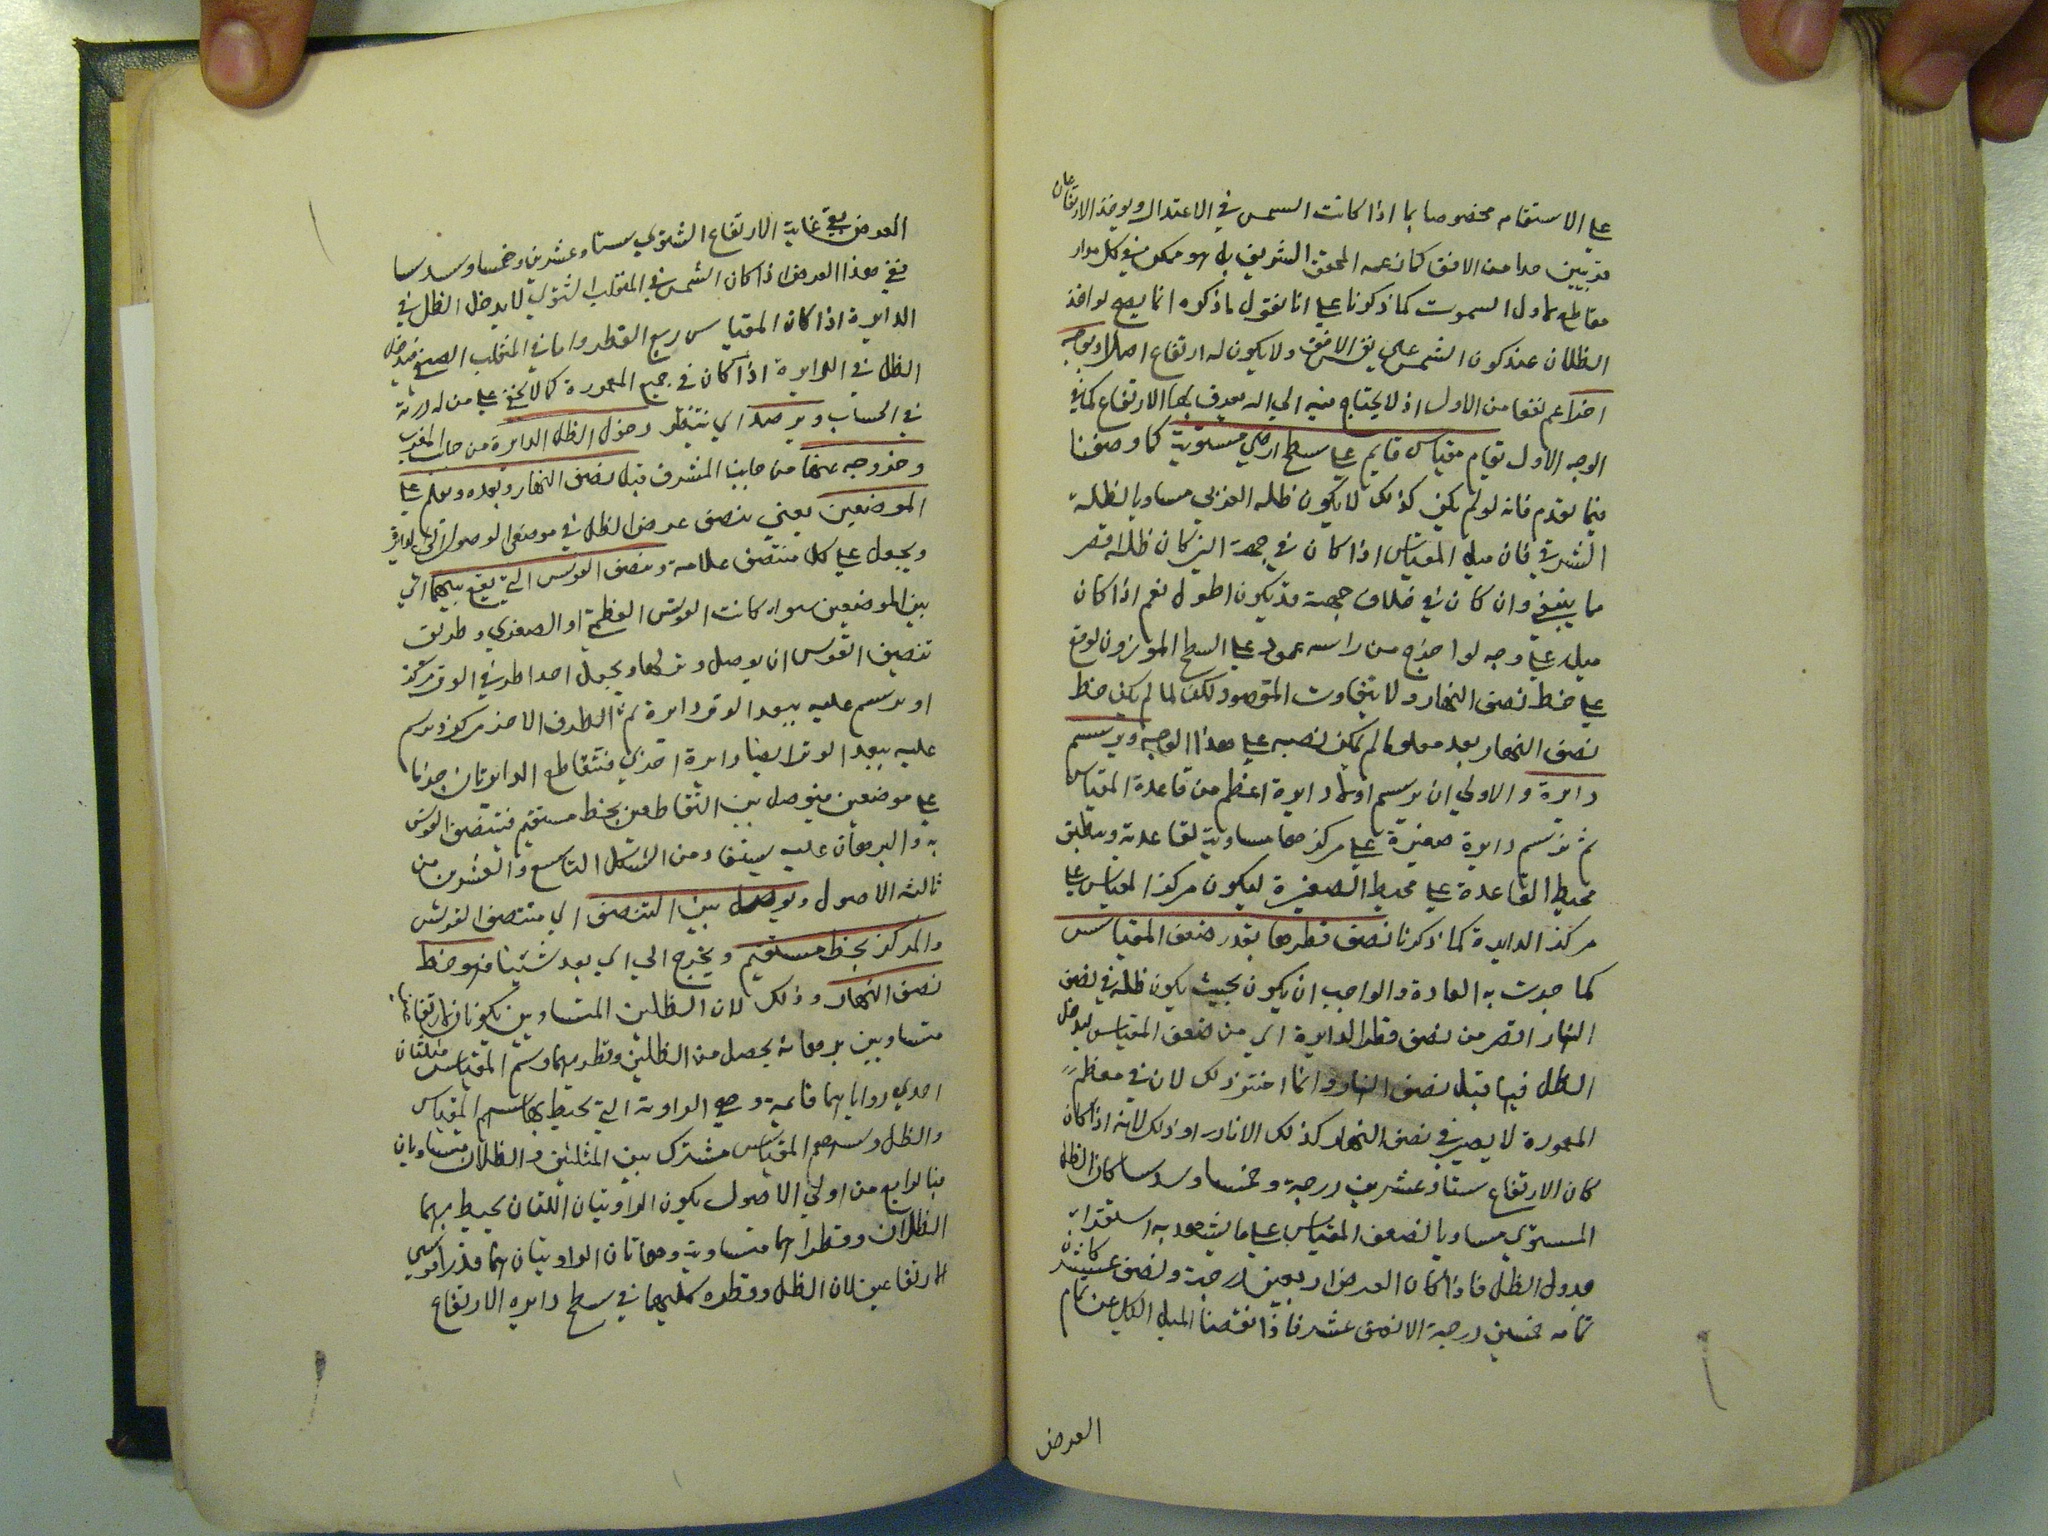 على الاستقامه مخصوصا بما اذا كانت الشمس في الاعتدال ويوخذ الارتفاعان
قريبين جدا من الافق كما زعمه المحقق الشريف بل هو ممكن في كل مدار
مقاطع لاول السموت كما ذكرنا على انا نقول ما ذكره انما يصح لو اخذ
الظلان عند كون الشمس على نفس الافق ولا يكون له ارتفاع اصلا وبوجه
اخر اعم نفعا من الاول اذ لا يحتاج فيه الى اله يعرف بها الارتفاع كما في
الوجه الاول يقام مقياس قايم على سطح ارض مستوية كما وصفنا
فيما تقدم فانه لو لم يكن كذلك لا يكون ظله الغربي مساويا لظله
الشرقي فان ميل المقياس اذا كان في جهة الـ كان ظله اقصر
مما ينبغي وان كان في خلاف جهته قد يكون اطول نعم اذا كان
ميله على وجه لو اخرج من راسه عمود على السطح الموزون لوقع
على خط نصف النهار ولا يتفاوت المقصود لكن لما لم يكن خط
نصف النهار بعد معلوما لم يمكن نصبه على هذا الوجه ويرسم
دايرة والاولى ان يرسم اولا دايرة اعظم من قاعدة المقياس
ثم يرسم دايرة صغيرة على مركزها مساوية لقاعدته ويطبق
محيط القاعدة على محيط الصغيرة ليكون مركز المقياس على
مركز الدايرة كما ذكرنا نصف قطرها بقدر ضعف المقياس
كما جرت به العادة والواجب ان يكون بحيث يكون ظله في نصف
النهار اقصر من نصف قطر الدايرة اي من ضعف المقياس ليدخل
الظل فيها قبل نصف النهار وانما اختير ذلك لان في معظم
المعمورة لا يصير في نصف النهار كذلك الا نادرا وذلك لانه اذا كان
كان الارتفاع ستا وعشرين درجة وخمسا وسدسا كان الظل
المستوي مساويا لضعف المقياس على ما يشهد به استقراء
جدول الظل فاذا كان العرض اربعين درجة ونصف عشر كان
تمامه خمسين درجة الا نصف عشر فاذا نقصنا الميل الكلي عن تمام
العرض
العرض بقي غاية الارتفاع الشتوي ستا وعشرين وخمسا وسدسا
ففي هذا العرض اذا كان الشمس في المنقلب الشتوي لا يدخل الظل في
الدايرة اذا كان المقياس ربع القطر واما في المنقلب الصيفي فيدخل
الظل في الدايرة اذا كان في جميع المعمورة كما لا يخفى على من له دربة
في الحساب ويرصد اي ينتظر دخول الظل الدايرة من جانب المغرب
وخروجه عنها من جانب المشرق قبل نصف النهار وبعده ويعلم على
الموضعين يعني ينصف عرض الظل في موضعي الوصول الى الدايرة
ويجعل على كل منتصف علامة وينصف القوس التي يقع بينهما اي
بين الموضعين سواء كانت القوس العظمى او الصغرى وطريق
تنصيف القوس ان يوصل وترها ويجعل احد طرفي الوتر مركز
او يرسم عليه ببعد الوتر دايرة ثم الطرف الاخر مركز ويرسم
عليه ببعد الوتر ايضا دايرة اخرى فتتقاطع الدايرتان
على موضعين فيوصل بين التقاطعين بخط مستقيم فينتصف القوس
به والبرهان عليه يستفاد من الشكل التاسع والعشرين من
ثالثه الاصول ويوصل بين المنتصف اي منتصف القوس
والمركز بخط مستقيم ويخرج الى اي بعد شئنا فهو خط
نصف النهار وذلك لان الظلين المتساويين يكونان ارتفاعاهما
متساويين برهانه يحصل من الظلين وقطريهما وسهم المقياس مثلثان
احدي زواياهما قائمة وهي الزاوية التي يحيط بها سهم المقياس
والظل وسهم المقياس مشترك بين المثلثين والظلان متساويان
فبالرابع من اولى الاصول يكون الزاويتان اللتان يحيط بهما
الظلان وقطراهما متساوية وهاتان الزاويتان هما قدرا قوسي
الارتفاعين لان الظل وقطره كليهما في سطح دايره الارتفاع